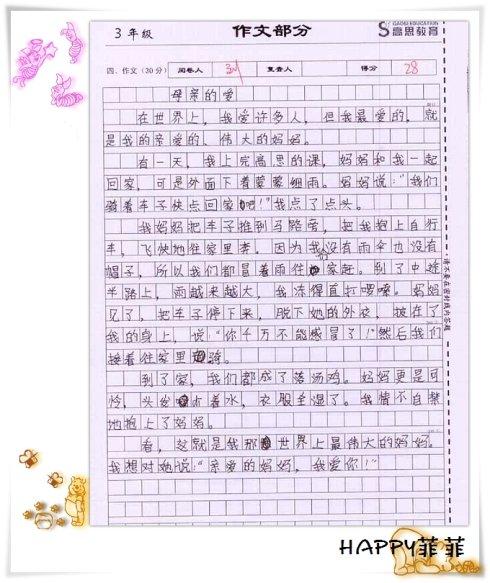 3年级
作文部分
GAOSI EDUCATION
高思教育
四、作文(20分)
阅卷人
复查人
得分
28
母亲的爱
在世界上，我爱许多人，但我最爱的，就
是我的亲爱的、伟大的妈妈。
有一天，我上完高思的课，妈妈和我一起
回家，可是外面下着蒙蒙细雨。妈妈说：“我们
骑着车子快点回家吧！”我点了点头。
我妈妈把车子推到马路旁，把我抱上自行
车，飞快地往家里奔。因为我们没有雨伞也没有
帽子，所以我们都冒着雨往家赶。到了中途
半路上，雨越来越大，我冻得直打哆嗦。妈妈
见了，把车子停下来，脱下她的外衣，披在了
我的身上，说：“你千万不能感冒了！”然后我们
接着往家里骑。
到了家，我们都成了落汤鸡。妈妈更是可
怜，头发滴着水，衣服全湿了。我情不自禁
地抱上了妈妈。
看，这就是我那世界上最伟大的妈妈。
我想对她说：“亲爱的妈妈，我爱你！”
HAPPY菲菲